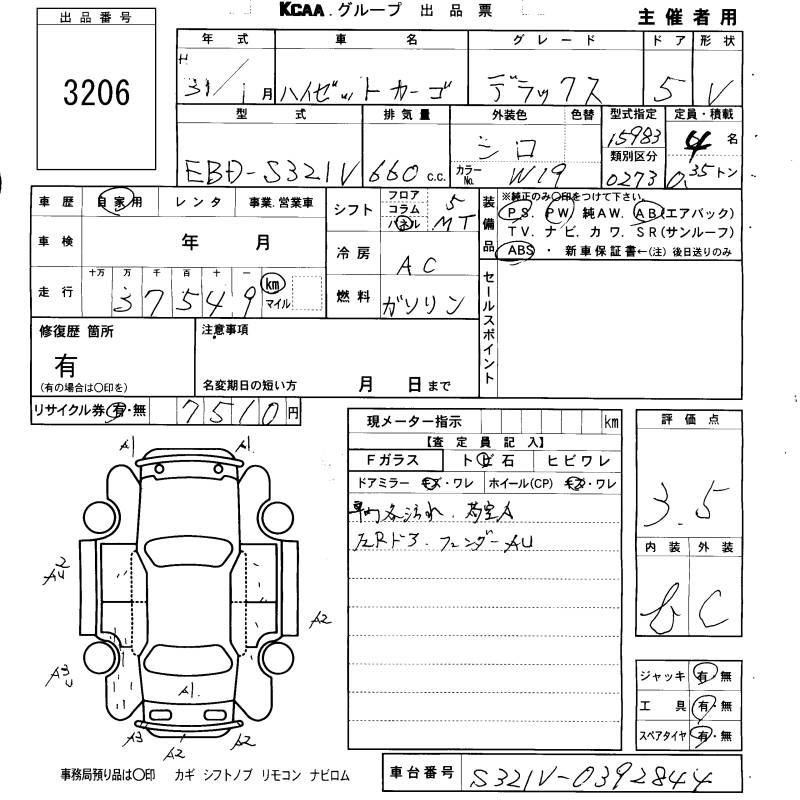 出品番号
3206
KCAA.グループ 出品票
主催者用
年式 車名 グレード ドア 形状
H 31/1月 ハイゼット カーゴ デラックス 5 V
型式 排気量 外装色 色替 型式指定 定員・積載
EBD-S321V 660 c.c. シロ カラーNo. W19 15983 4名
類別区分
0273 0.35トン
車歴 自家用 レンタ 事業.営業車
シフト フロア コラム パネル 5 MT
装備品 ※純正のみ○印をつけて下さい。
PS. PW. 純AW. AB(エアバック)
TV. ナビ. カワ. SR(サンルーフ)
ABS ・ 新車保証書←(注) 後日送りのみ
車検 年 月
冷房 AC
走行 十万 万 千 百 十 一
37549 km マイル
燃料 ガソリン
セールスポイント
修復歴 箇所
有
(有の場合は○印を)
注意事項
名変期日の短い方 月 日まで
リサイクル券 有・無 7510円
現メーター指示 km
【査定員記入】
Fガラス トビ石 ヒビワレ
ドアミラー キズ・ワレ ホイール(CP) キズ・ワレ
車内各汚れ.荷室A
左Rドア.フェンダーAU
評価点
3.5
内装 外装
b C
A1 A1
A2
U
A2
A3
U
A1.
A3 A2 A2
ジャッキ 有・無
工具 有・無
スペアタイヤ 有・無
事務局預り品は○印 カギ シフトノブ リモコン ナビロム
車台番号 S321V-0392844